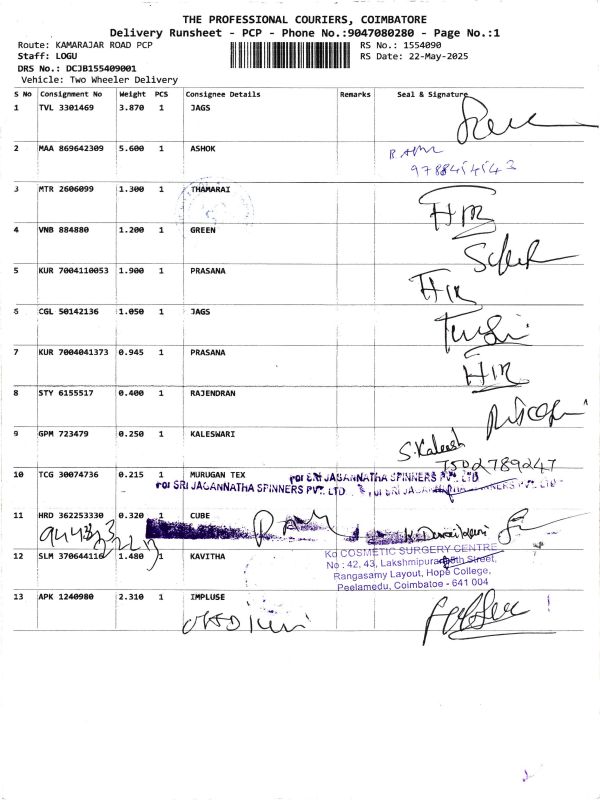 THE PROFESSIONAL COURIERS, COIMBATORE
Delivery Runsheet - PCP - Phone No.:9047080280 - Page No.:1
Route: KAMARAJAR ROAD PCP RS No.: 1554090
Staff: LOGU RS Date: 22-May-2025
DRS No.: DCJB155409001
Vehicle: Two Wheeler Delivery
S No Consignment No Weight PCS Consignee Details Remarks Seal & Signature
1 TVL 3301469 3.870 1 JAGS
2 MAA 869642309 5.600 1 ASHOK
9788454542
3 MTR 2606099 1.300 1 THAMARAI
4 VNB 884880 1.200 1 GREEN
5 KUR 7004110053 1.900 1 PRASANA
6 CGL 50142136 1.050 1 JAGS
7 KUR 7004041373 0.945 1 PRASANA
8 STY 6155517 0.400 1 RAJENDRAN
9 GPM 723479 0.250 1 KALESWARI
S.Kaleesh
7502789247
10 TCG 30074736 0.215 1 MURUGAN TEX
For SRI JAGANNATHA SPINNERS PVT. LTD
For SRI JAGANNATHA SPINNERS PVT. LTD
11 HRD 362253330 0.320 1 CUBE
12 SLM 370644116 1.480 1 KAVITHA
Ko COSMETIC SURGERY CENTRE
No : 42, 43, Lakshmipuram Street,
Rangasamy Layout, Hope College,
Peelamedu, Coimbatoe - 641 004
13 APK 1240980 2.310 1 IMPLUSE